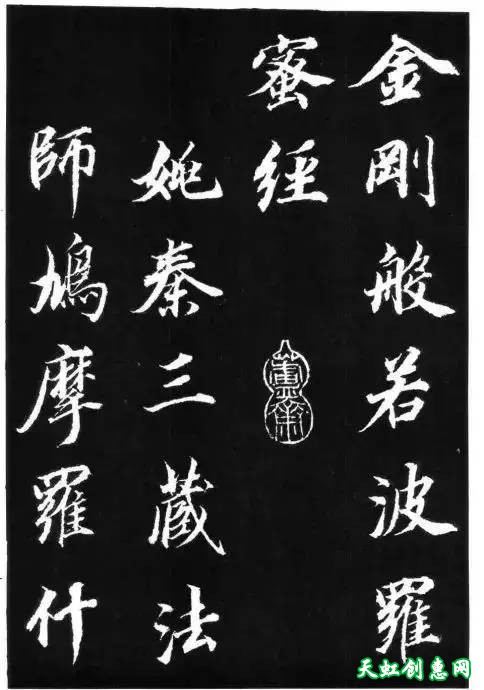 金剛般若波羅
蜜經
姚秦三藏法
師鳩摩羅什
天虹创意网